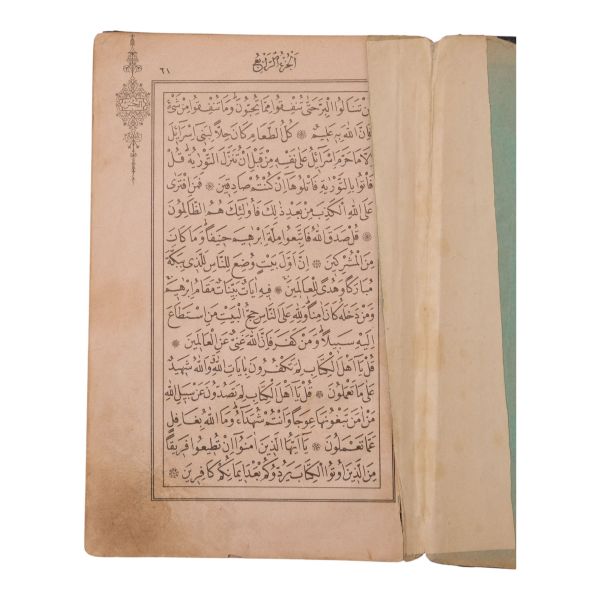 الجزء الرابع
٦١
الجزء
لن تنالوا البر حتى تنفقوا مما تحبون وما تنفقوا من شئ
فان الله به عليم ❊ كل الطعام كان حلا لبنى اسرائل
الا ما حرم اسرائل على نفسه من قبل ان تنزل التورية قل
فأتوا بالتورية فاتلوها ان كنتم صادقين ❊ فمن افترى
على الله الكذب من بعد ذلك فاولئك هم الظالمون
❊ قل صدق الله فاتبعوا ملة ابرهيم حنيفا وما كان
من المشركين ❊ ان اول بيت وضع للناس للذى ببكة
مباركا وهدى للعالمين ❊ فيه ايات بينات مقام ابرهيم
ومن دخله كان امنا ولله على الناس حج البيت من استطاع
اليه سبيلا ومن كفر فان الله غنى عن العالمين ❊
قل يا اهل الكتاب لم تكفرون بايات الله والله شهيد
على ما تعملون ❊ قل يا اهل الكتاب لم تصدون عن سبيل الله
من امن تبغونها عوجا وانتم شهداء وما الله بغافل
عما تعملون ❊ يا ايها الذين امنوا ان تطيعوا فريقا
من الذين اوتوا الكتاب يردوكم بعد ايمانكم كافرين ❊